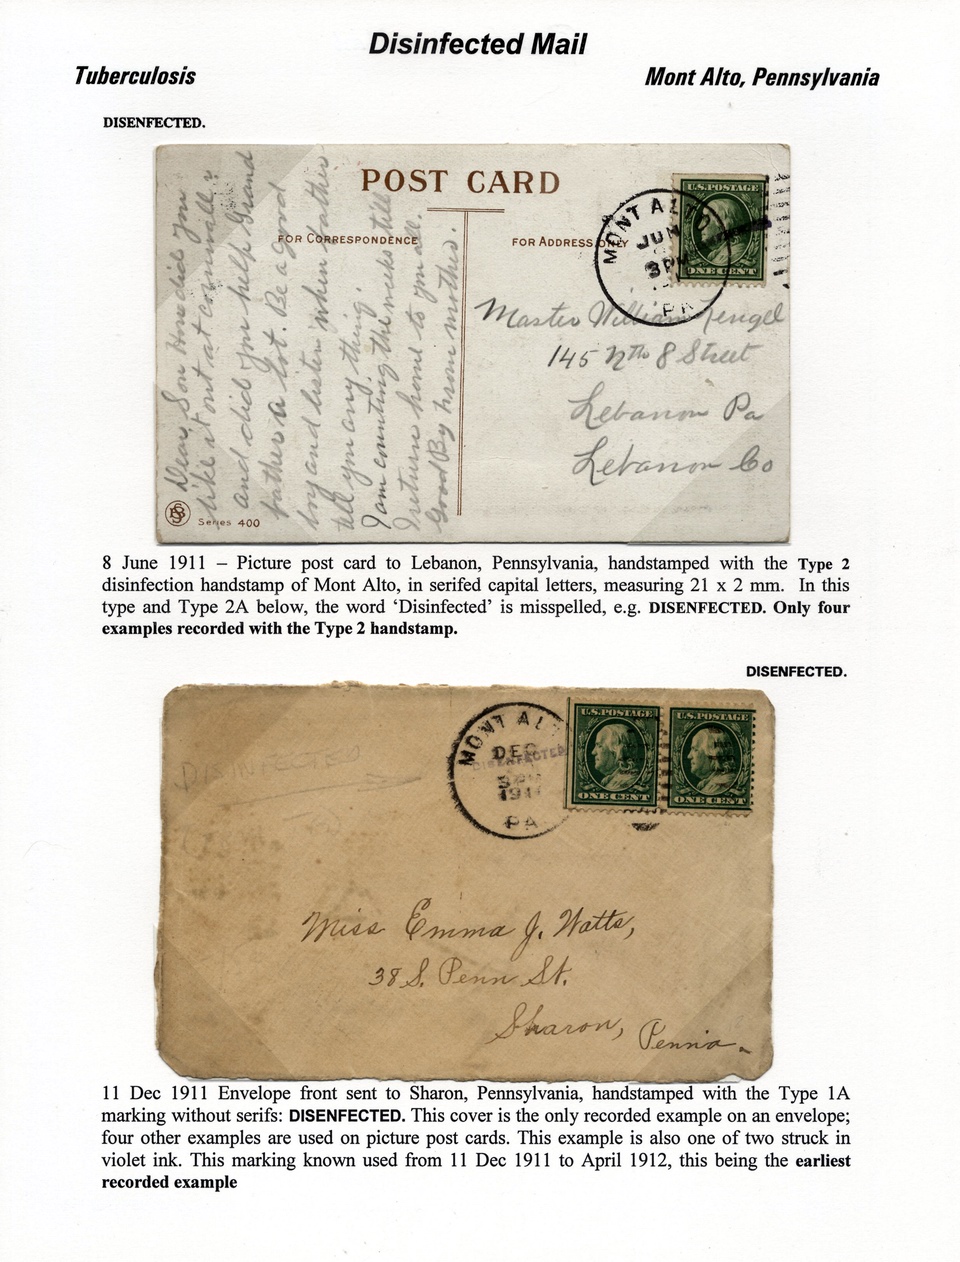 Disinfected Mail
Tuberculosis
Mont Alto, Pennsylvania
DISENFECTED.
POST CARD
FOR CORRESPONDENCE
FOR ADDRESS ONLY
U.S.POSTAGE
ONE CENT
MONT ALTO
JUN
3 PM
PA
Dear Son How did you
like it out at cornwall?
and did you help Grand
father a lot. Be a good
boy and listen when father
tell you any thing.
I am counting the weeks till
I return home to you all.
Good By from mother.
Master William Kengel
145 Nth 8 Street
Lebanon Pa
Lebanon Co
Series 400
8 June 1911 – Picture post card to Lebanon, Pennsylvania, handstamped with the Type 2
disinfection handstamp of Mont Alto, in serifed capital letters, measuring 21 x 2 mm. In this
type and Type 2A below, the word ‘Disinfected’ is misspelled, e.g. DISENFECTED. Only four
examples recorded with the Type 2 handstamp.
DISENFECTED.
MONT ALT
DEC
DISENFECTED
1911
PA
U.S.POSTAGE
ONE CENT
U.S.POSTAGE
ONE CENT
DISINFECTED
Miss Emma J. Watts,
38 S. Penn St.
Sharon, Penna.
11 Dec 1911 Envelope front sent to Sharon, Pennsylvania, handstamped with the Type 1A
marking without serifs: DISENFECTED. This cover is the only recorded example on an envelope;
four other examples are used on picture post cards. This example is also one of two struck in
violet ink. This marking known used from 11 Dec 1911 to April 1912, this being the earliest
recorded example